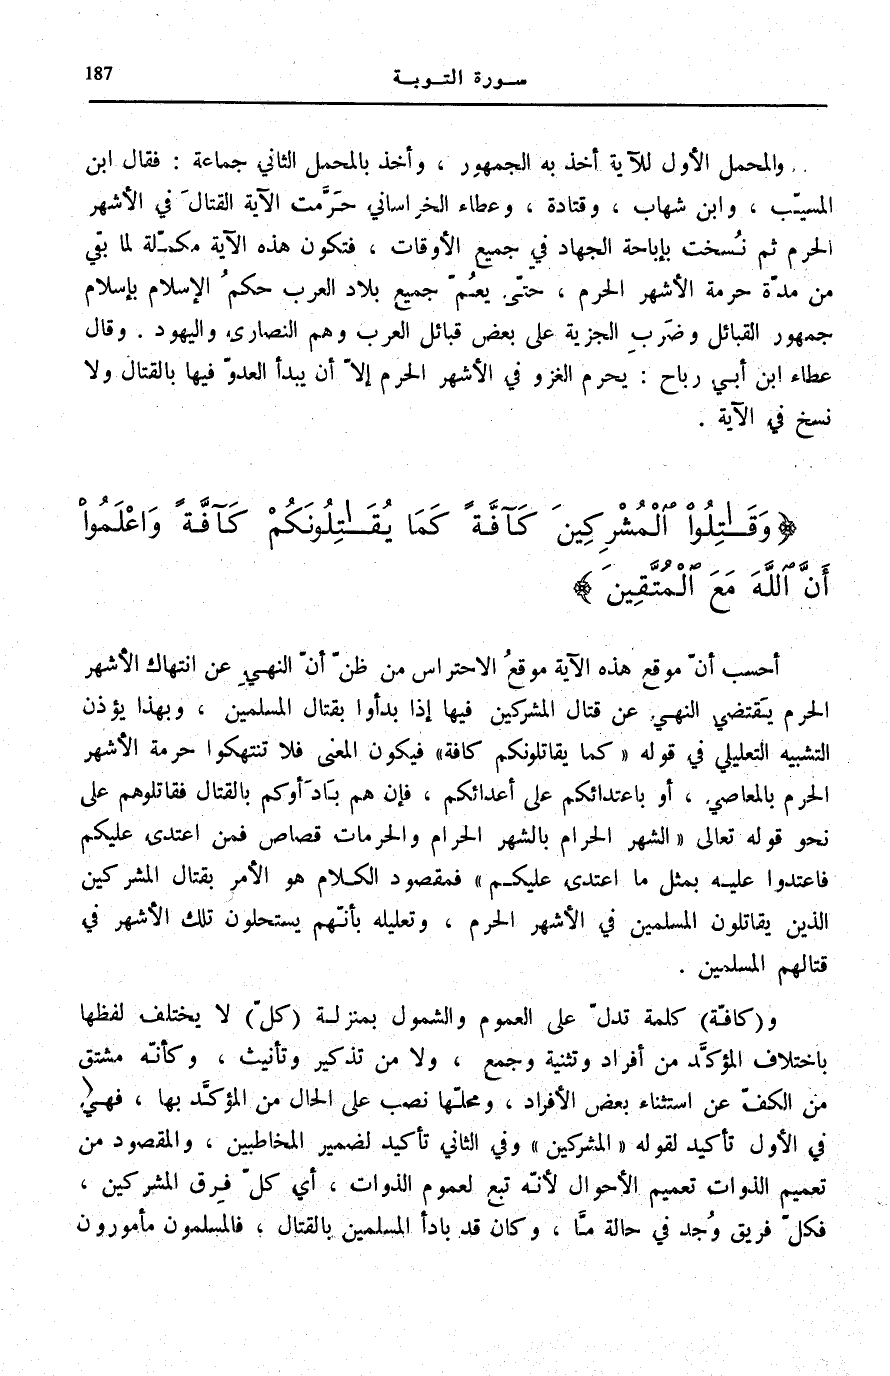 سورة التوبة 187
والمحمل الأول للآية أخذ به الجمهور ، وأخذ بالمحمل الثاني جماعة : فقال ابن
المسيّب ، وابن شهاب ، وقتادة ، وعطاء الخراساني حَرَّمت الآية القتالَ في الأشهر
الحرم ثم نُسخت بإباحة الجهاد في جميع الأوقات ، فتكون هذه الآية مكمِّلة لما بقي
من مدّة حرمة الأشهر الحرم ، حتّى يعُمّ جميع بلاد العرب حكمُ الإسلام بإسلام
جمهور القبائل وضَرب الجزية على بعض قبائل العرب وهم النصارى واليهود . وقال
عطاء ابن أبي رباح : يحرم الغزو في الأشهر الحرم إلاّ أن يبدأ العدوّ فيها بالقتال ولا
نسخ في الآية .
﴿ وَقَـٰتِلُواْ ٱلْمُشْرِكِينَ كَآفَّةً كَمَا يُقَـٰتِلُونَكُمْ كَآفَّةً وَاعْلَمُواْ
أَنَّ ٱللَّهَ مَعَ ٱلْمُتَّقِينَ ﴾
أحسب أنّ موقع هذه الآية موقعُ الاحتراس من ظنّ أنّ النهي عن انتهاك الأشهر
الحرم يَقتضي النهي عن قتال المشركين فيها إذا بدأوا بقتال المسلمين ، وبهذا يؤذن
التشبيه التعليلي في قوله « كما يقاتلونكم كافة» فيكون المعنى فلا تنتهكوا حرمة الأشهر
الحرم بالمعاصي ، أو باعتدائكم على أعدائكم ، فإن هم بَادَأوكم بالقتال فقاتلوهم على
نحو قوله تعالى « الشهر الحرام بالشهر الحرام والحرمات قصاص فمن اعتدى عليكم
فاعتدوا عليه بمثل ما اعتدى عليكم » فمقصود الكلام هو الأمر بقتال المشركين
الذين يقاتلون المسلمين في الأشهر الحرم ، وتعليله بأنّهم يستحلون تلك الأشهر في
قتالهم المسلمين .
و(كافّة) كلمة تدلّ على العموم والشمول بمنزلة (كلّ) لا يختلف لفظها
باختلاف المؤكَّد من أفراد وتثنية وجمع ، ولا من تذكير وتأنيث ، وكأنّه مشتق
من الكفّ عن استثناء بعض الأفراد ، ومحلّها نصب على الحال من المؤكَّد بها ، فهي
في الأول تأكيد لقوله « المشركين » وفي الثاني تأكيد لضمير المخاطبين ، والمقصود من
تعميم الذوات تعميم الأحوال لأنّه تبع لعموم الذوات ، أي كلّ فِرق المشركين ،
فكلّ فريق وُجد في حالة مَّا ، وكان قد بادأ المسلمين بالقتال ، فالمسلمون مأمورون